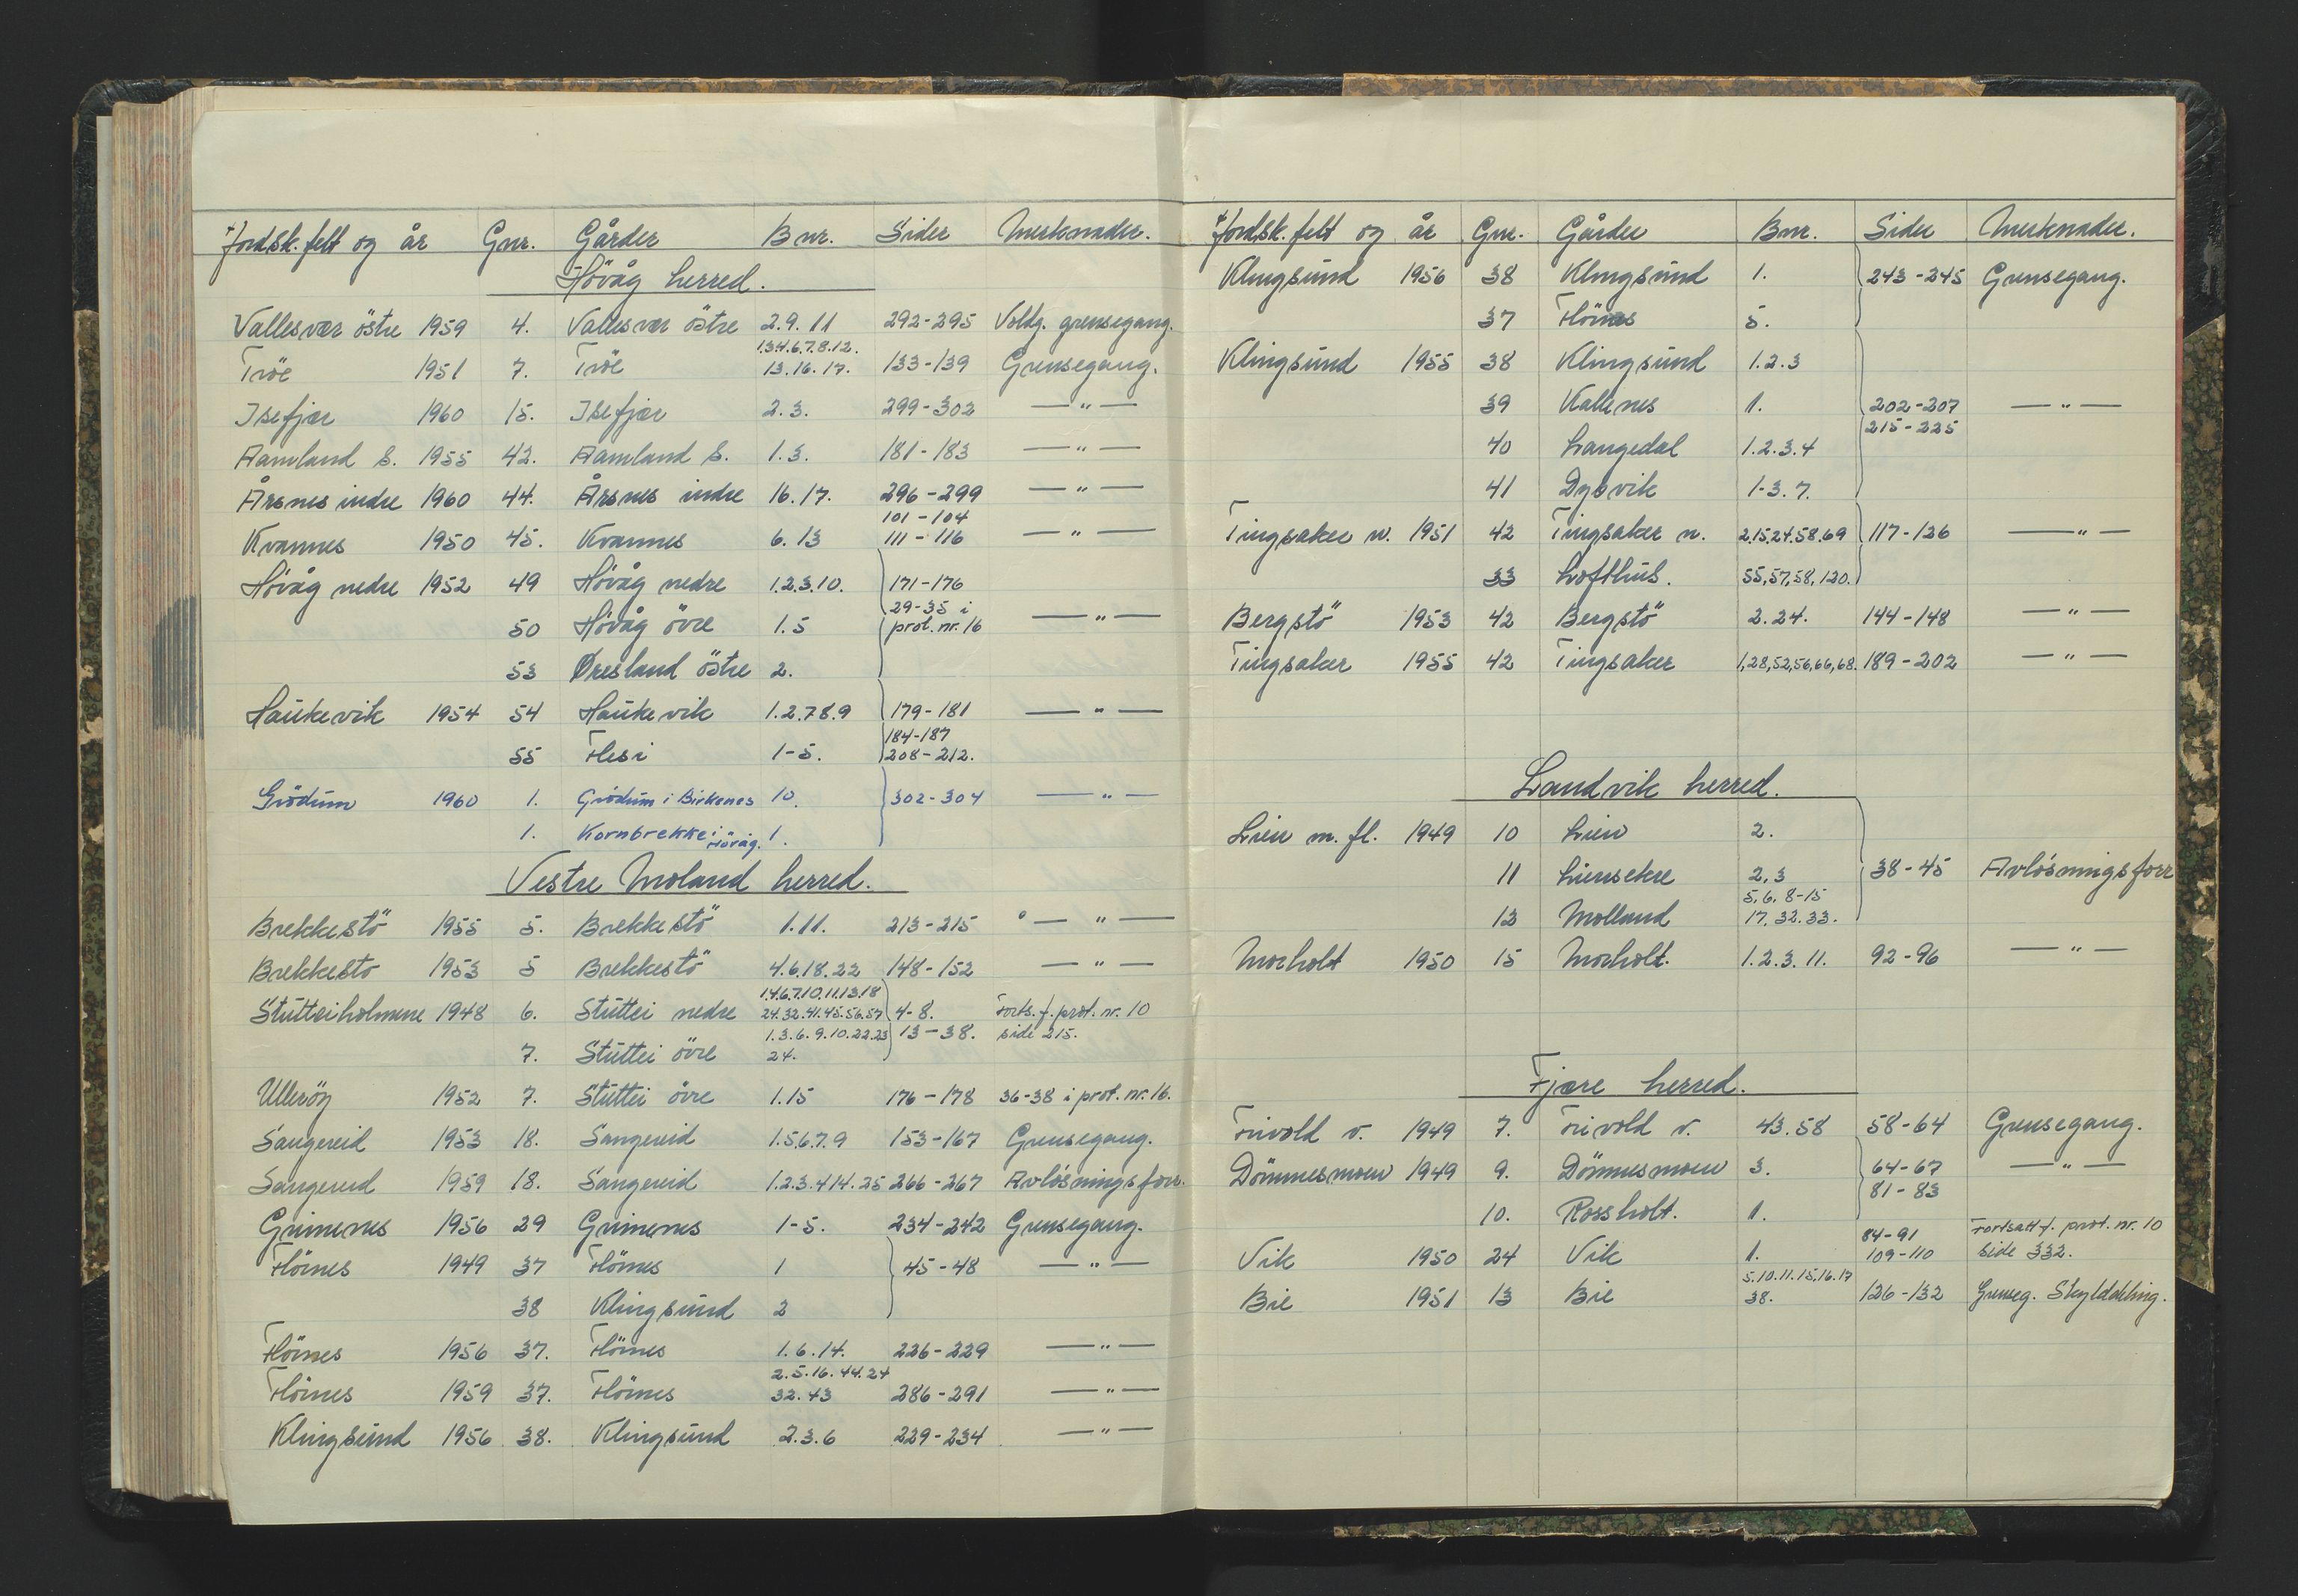 Jordsk. felt og år Gnr. Gårder Bnr. Sider Merknader.
Høvåg herred.
Vallesvær östre 1959 4. Vallesvær östre 2.9.11 292-295 Voldg. grensegang.
1.3.4.6.7.8.12.
Tröe 1951 7. Tröe 13.16.17. 133-139 Grensegang.
Isefjær 1960 15. Isefjær 2.3. 299-302 — " —
Aamland S. 1955 42. Aamland S. 1.3. 181-183 — " —
Årsnes indre 1960 44. Årsnes indre 16.17. 296-299 — " —
101-104
Kvannes 1950 45. Kvannes 6.13 111-116 — " —
Hövåg nedre 1952 49 Hövåg nedre 1.2.3.10. 171-176
29-35 i
50 Hövåg övre 1.5 prot. nr. 16 — " —
53 Øresland östre 2.
Haukevik 1954 54 Haukevik 1.2.7.8.9 179-181 — " —
184-187
55 Flesi 1-5. 208-212.
Grödum 1960 1. Grödum i Birkenes 10. 302-304 — " —
1. Kornbrekke i Høvåg. 1.
Vestre Moland herred.
Brekkestö 1955 5. Brekkestö 1.11. 213-215 — " —
Brekkestö 1953 5 Brekkestö 4.6.18.22 148-152 — " —
1.4.6.7.10.11.13.18
Stutteiholmene 1948 6. Stuttei nedre 24.32.41.45.56.57 4-8. Forts. f. prot. nr. 10
1.3.6.9.10.22.23 13-38. side 215.
7. Stuttei övre 24.
Ulleröy 1952 7. Stuttei övre 1.15 176-178 36-38 i prot. nr. 16.
Sangereid 1953 18. Sangereid 1.5.6.7.9 153-167 Grensegang.
Sangereid 1959 18. Sangereid 1.2.3.4.14.25 266-267 Avlösningsforr.
Grimenes 1956 29 Grimenes 1-5. 234-242 Grensegang.
Flörnes 1949 37 Flörnes 1 45-48 — " —
38 Klingsund 2
Flörnes 1956 37. Flörnes 1.6.14. 226-229 — " —
2.5.16.44.24
Flörnes 1959 37. Flörnes 32.43 286-291 — " —
Klingsund 1956 38. Klingsund 2.3.6 229-234 — " —
Jordsk. felt og år Gnr. Gårder Bnr. Sider Merknader.
Klingsund 1956 38 Klingsund 1. 243-245 Grensegang.
37 Flörnes 5.
Klingsund 1955 38 Klingsund 1.2.3
39 Kallenes 1. 202-207 — " —
215-225
40 Langedal 1.2.3.4
41 Dybvik 1-3.7.
Tingsaker n. 1951 42 Tingsaker n. 2.15.24.58.69 117-126 — " —
33 Lofthus. 55,57,58,120.
Bergstö 1953 42 Bergstö 2.24. 144-148 — " —
Tingsaker 1955 42 Tingsaker 1,28,52,56,66,68. 189-202 — " —
Landvik herred.
Lien m. fl. 1949 10 Lien 2.
11 Liensekre 2,3 38-45 Avlösningsforr
5,6,8-15
13 Molland 17.32.33.
Morholt 1950 15 Morholt. 1.2.3.11. 92-96 — " —
Fjære herred.
Frivold v. 1949 7. Frivold v. 43.58 58-64 Grensegang.
Dömmesmoen 1949 9. Dömmesmoen 3. 64-67 — " —
81-83
10. Rossholt. 1.
84-91 Fortsatt f. prot. nr. 10
Vik 1950 24 Vik 1. 109-110 side 332.
5.10.11.15.16.17
Bie 1951 13 Bie 38. 126-132 Grenseg. Skylddeling.